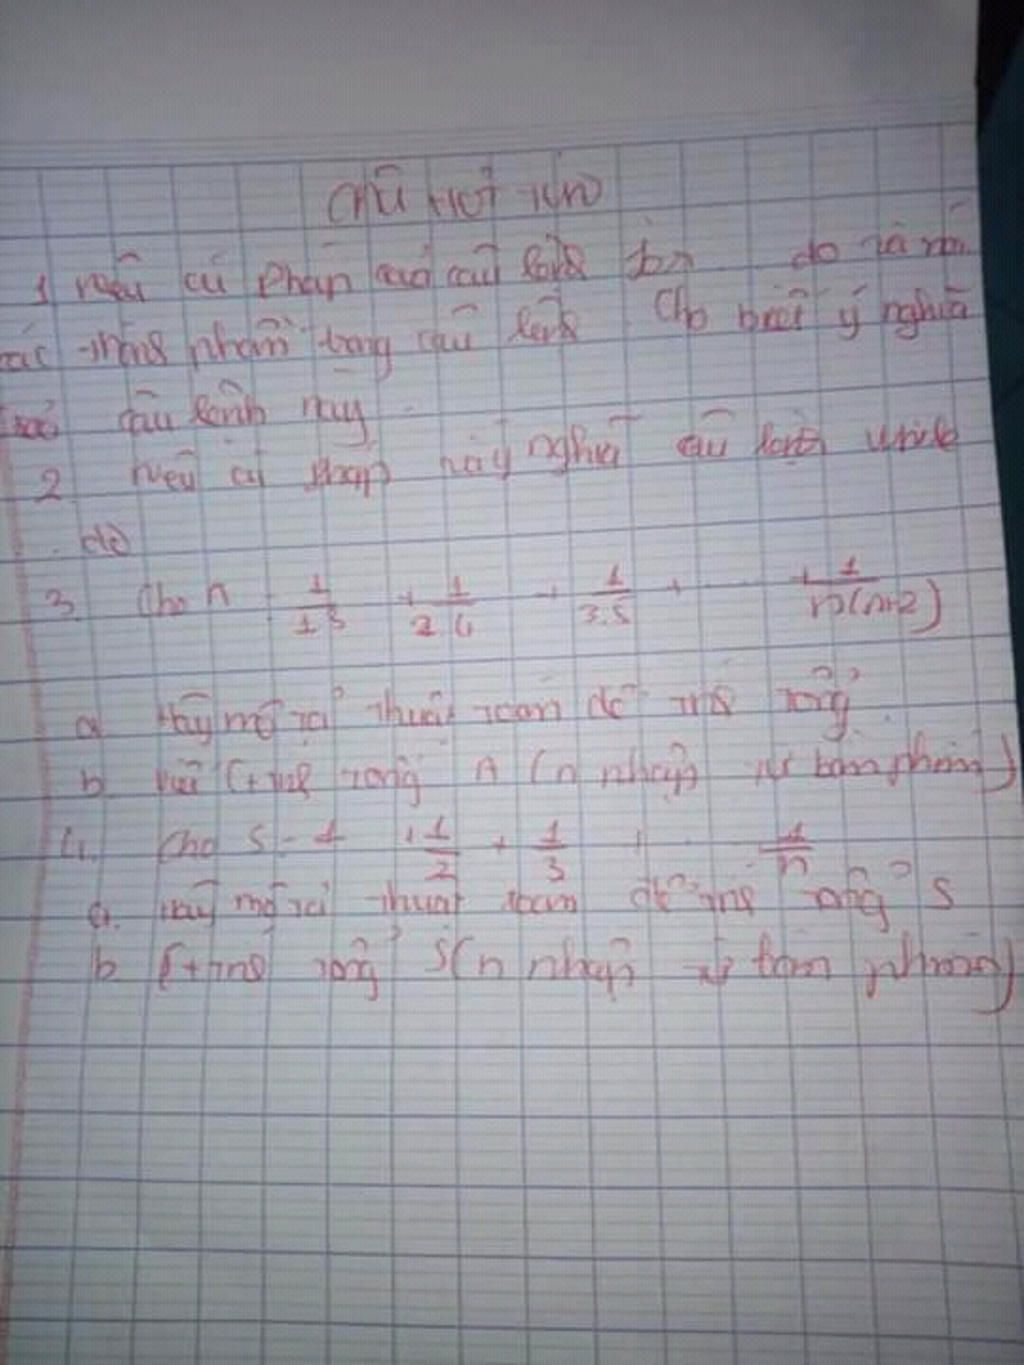 Câu Hỏi
1 nêu cú Pháp của câu lệnh do
các thành phần trong câu lệnh Cho biết ý nghĩa
câu lệnh này
2 Nêu cú pháp nghĩa câu lệnh while
do
3 Cho A 1/1.3 + 1/2.4 + 1/3.5 + ... + 1/n(n+2)
a Hãy mô tả thuật toán để tính tổng
b viết Ctrinh tổng A (n nhập từ bàn phím)
4. Cho S = 1 + 1/2 + 1/3 + ... 1/n
a. Hãy mô tả thuật toán để tính tổng S
b tổng S (n nhập từ bàn phím)